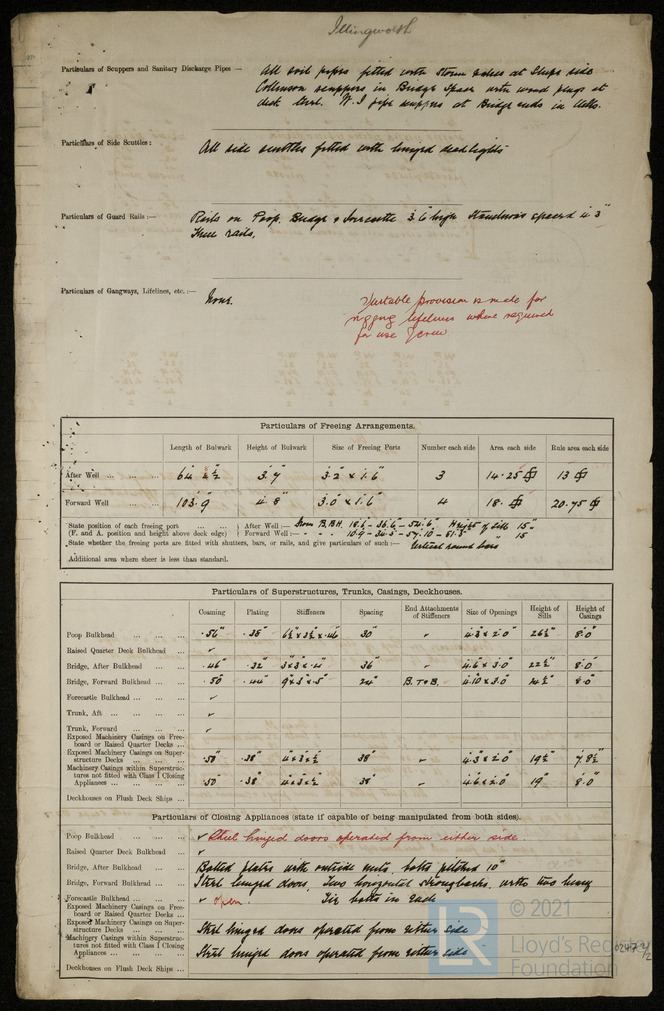 Illingworth
Particulars of Scuppers and Sanitary Discharge Pipes — All soil pipes fitted with storm valves at Ships side
Collinson scuppers in Bridge space with wood plugs at
deck level. W.I pipe scuppers at Bridge ends in
Particulars of Side Scuttles: All side scuttles fitted with hinged deadlights
Particulars of Guard Rails:— Rails on Poop, Bridge & Forecastle 3.6 high Stanchions spaced 4.3"
Three rails.
Particulars of Gangways, Lifelines, etc.:— None. Suitable provision is made for
rigging lifelines where required
for use of crew.
Particulars of Freeing Arrangements.
Length of Bulwark Height of Bulwark Size of Freeing Ports Number each side Area each side Rule area each side
After Well ... ... ... 3.7" 3.2 × 1.6" 3 14.25 13
Forward Well ... ... 103.9 4.8" 3.0 × 1.6" 4 18. 20.75
State position of each freeing port ... ... ... After Well:— from B.B.H. 18.6 - 36.6 - 54.6" Height of Sills 15"
(F. and A. position and height above deck edge) Forward Well:— " " 10.9 - 34.3 - 57.10 - 81.3 " 15
State whether the freeing ports are fitted with shutters, bars, or rails, and give particulars of such:— Vertical round bars
Additional area where sheer is less than standard.
Particulars of Superstructures, Trunks, Casings, Deckhouses.
Coaming Plating Stiffeners Spacing End Attachments of Stiffeners Size of Openings Height of Sills Height of Casings
Poop Bulkhead ... ... ... .56" .38" 6½ × 3½ × .46 30" 4.3 × 2.0" 26½" 8.0"
Raised Quarter Deck Bulkhead ...
Bridge, After Bulkhead ... ... .46" .32" 3×3×.4" 36" 4.6 × 3.0" 22½" 8.0"
Bridge, Forward Bulkhead ... ... .50" .44" 9×3×.5" 24" B. T+B. 4.10 × 3.0" 24½" 8.0"
Forecastle Bulkhead ... ... ...
Trunk, Aft ... ... ... ...
Trunk, Forward ... ... ...
Exposed Machinery Casings on Free-
board or Raised Quarter Decks ...
Exposed Machinery Casings on Super-
structure Decks ... ... ... .50" .38" 4×3×½ 38" 4.3 × 2.0" 19½" 7.8½"
Machinery Casings within Superstruc-
tures not fitted with Class I Closing
Appliances ... ... ... ... .50" .38" 4×3×½" 38" 4.6 × 2.0" 19" 8.0"
Deckhouses on Flush Deck Ships ...
Particulars of Closing Appliances (state if capable of being manipulated from both sides).
Poop Bulkhead ... ... ... Steel hinged doors operated from either side.
Raised Quarter Deck Bulkhead ...
Bridge, After Bulkhead ... ... Bolted plates with outside nuts, bolts pitched 10"
Bridge, Forward Bulkhead ... ... Steel hinged doors, Two horizontal strongbacks, with two hinges
Forecastle Bulkhead ... ... ... open. Six bolts in each
Exposed Machinery Casings on Free-
board or Raised Quarter Decks ...
Exposed Machinery Casings on Super-
structure Decks ... ... ... Steel hinged doors operated from either side
Machinery Casings within Superstruc-
tures not fitted with Class I Closing
Appliances ... ... ... ... Steel hinged doors operated from either side
Deckhouses on Flush Deck Ships ...
© 2021
LR
Lloyd's Register
Foundation